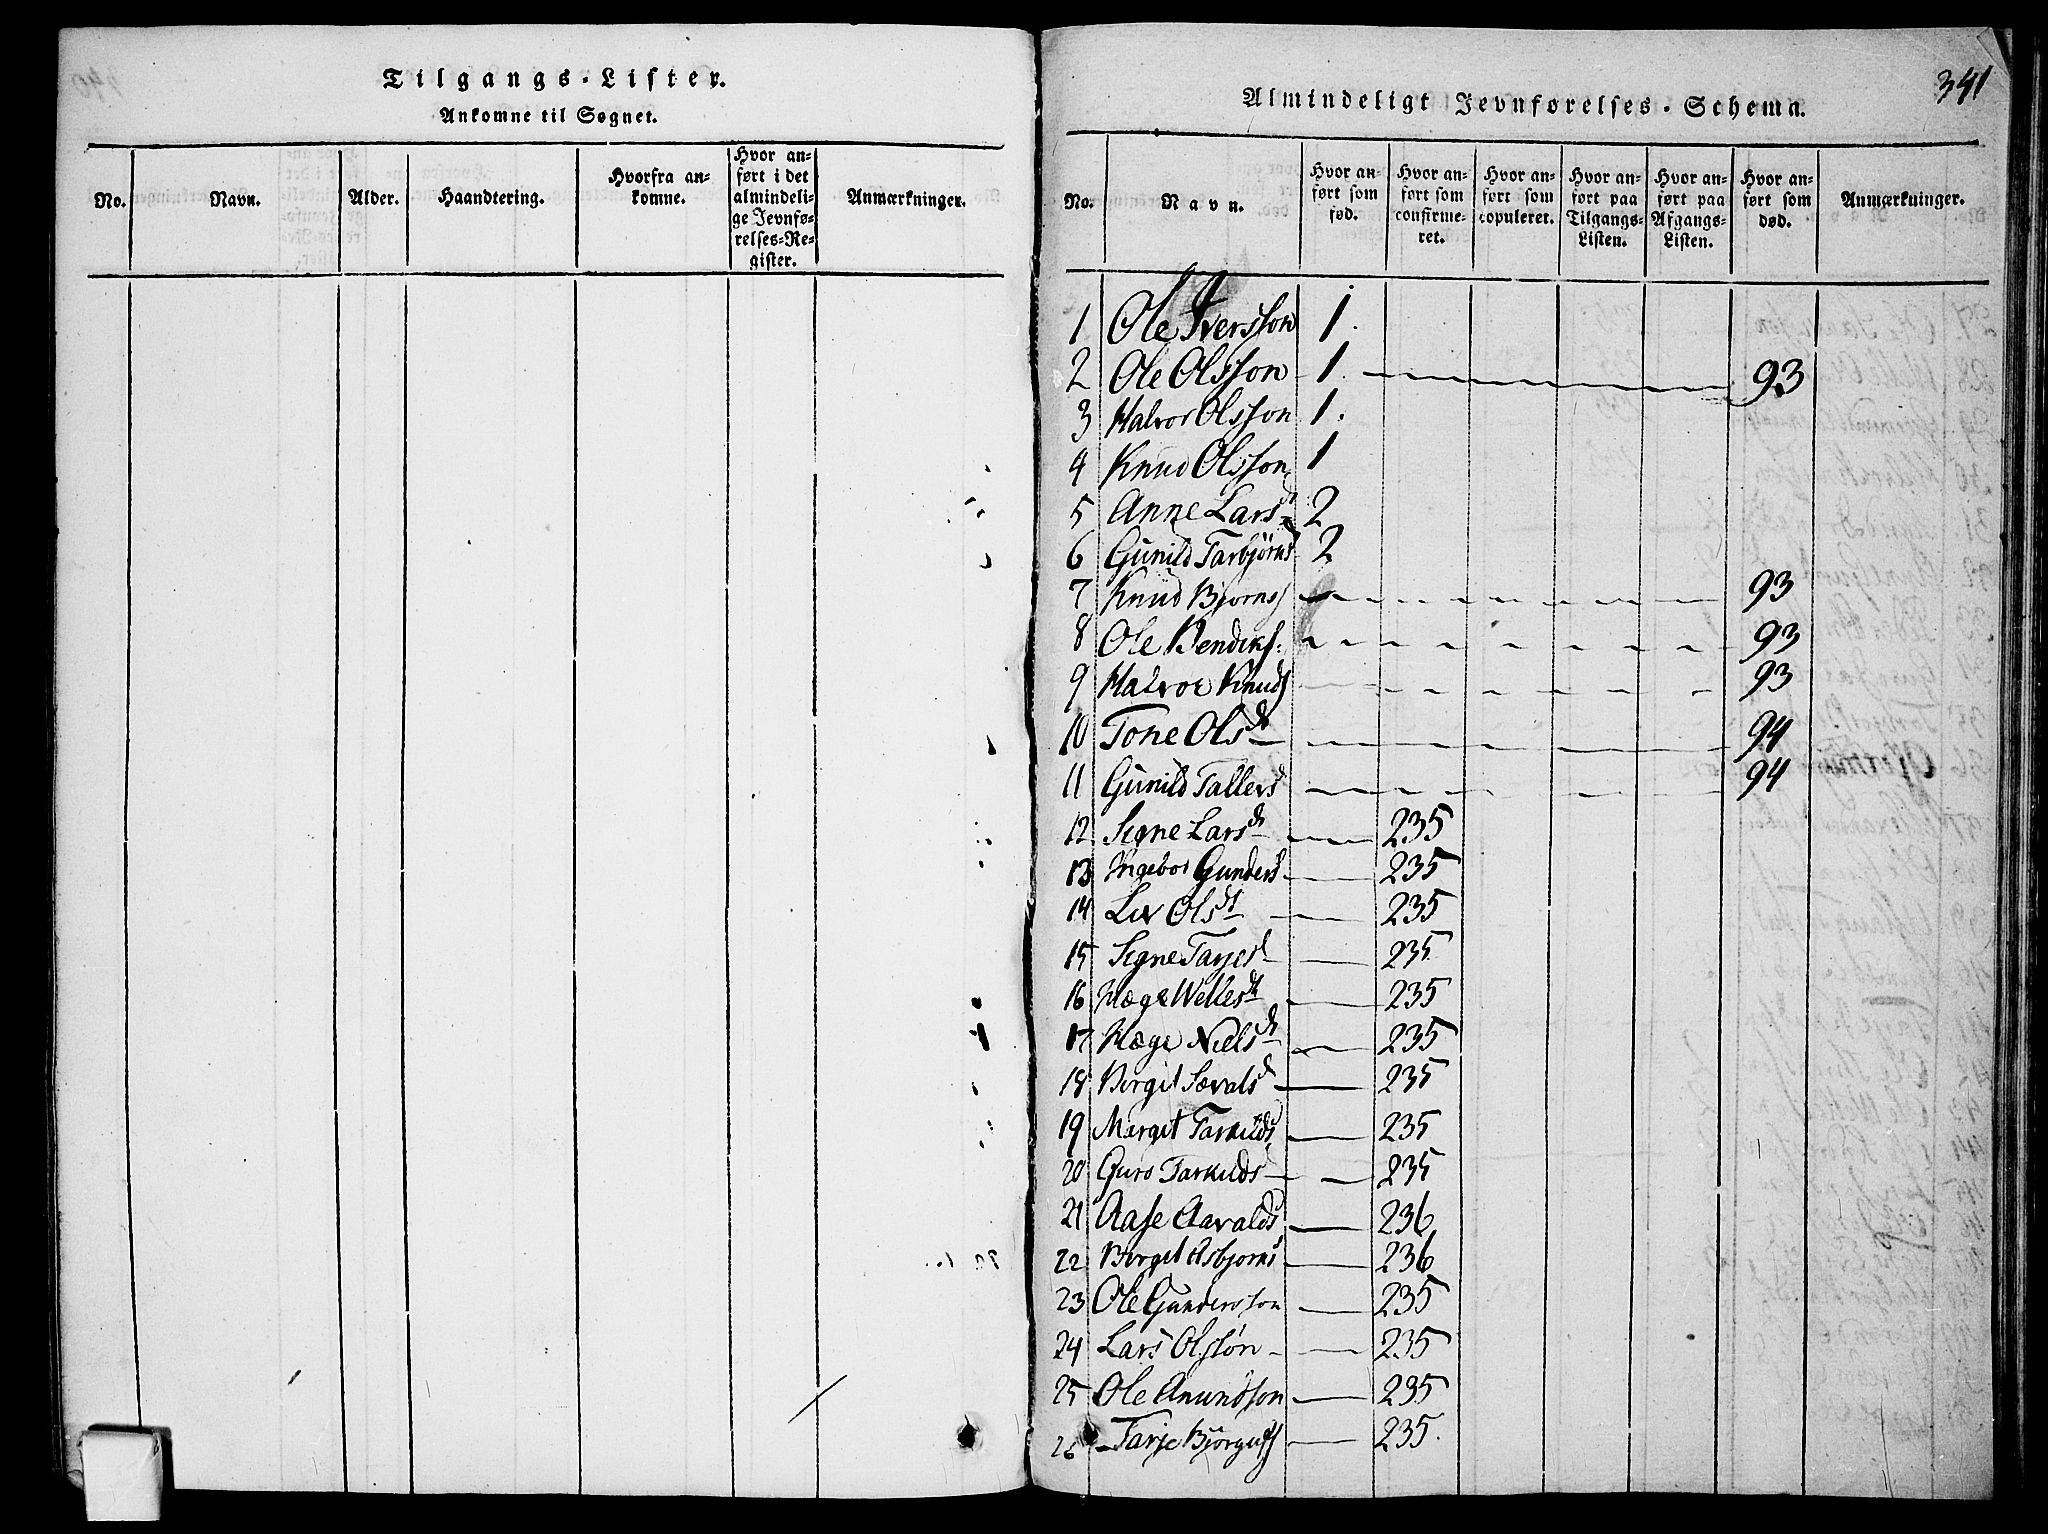 Tilgangs-Lister.
Ankomne til Sognet.
No. Navn. Alder. Haandtering. Hvorfra ankomne. Hvor anført i det almindelige Jevnførelses-Register. Anmærkninger.
341
Almindeligt Jevnførelses-Schema.
No. Navn. Hvor anført som fød. Hvor anført som confirmeret. Hvor anført som copuleret. Hvor anført paa Tilgangs-Listen. Hvor anført paa Afgangs-Listen. Hvor anført som død. Anmærkninger.
1 Ole Iversson 1.
2 Ole Olsson 1. 93
3 Halvor Olsson 1.
4 Knud Olsson 1
5 Anne Larsd 2
6 Gunild Tarbjørnsd 2
7 Knud Bjørns 93
8 Ole Bendiks: 93
9 Halvor Knuds 93
10 Tone Olsdr 94
11 Gunild Tallevsd 94
12 Signe Larsdr 235
13 Ingebor Gundersd 235
14 Liv Olsdt 235
15 Signe Tarjesd 235
16 Hæge Wetlesdr 235
17 Hæge Nielsdr 235
18 Birgit Sævalsd 235
19 Margit Tarkilds 235
20 Guro Tarkilds 235
21 Aase Aavalds 236
22 Birgit Asbjørns 236
23 Ole Gundersson 235
24 Lars Olsøn 235
25 Ole Anundson 235
26 Tarje Bjørgufs 235.